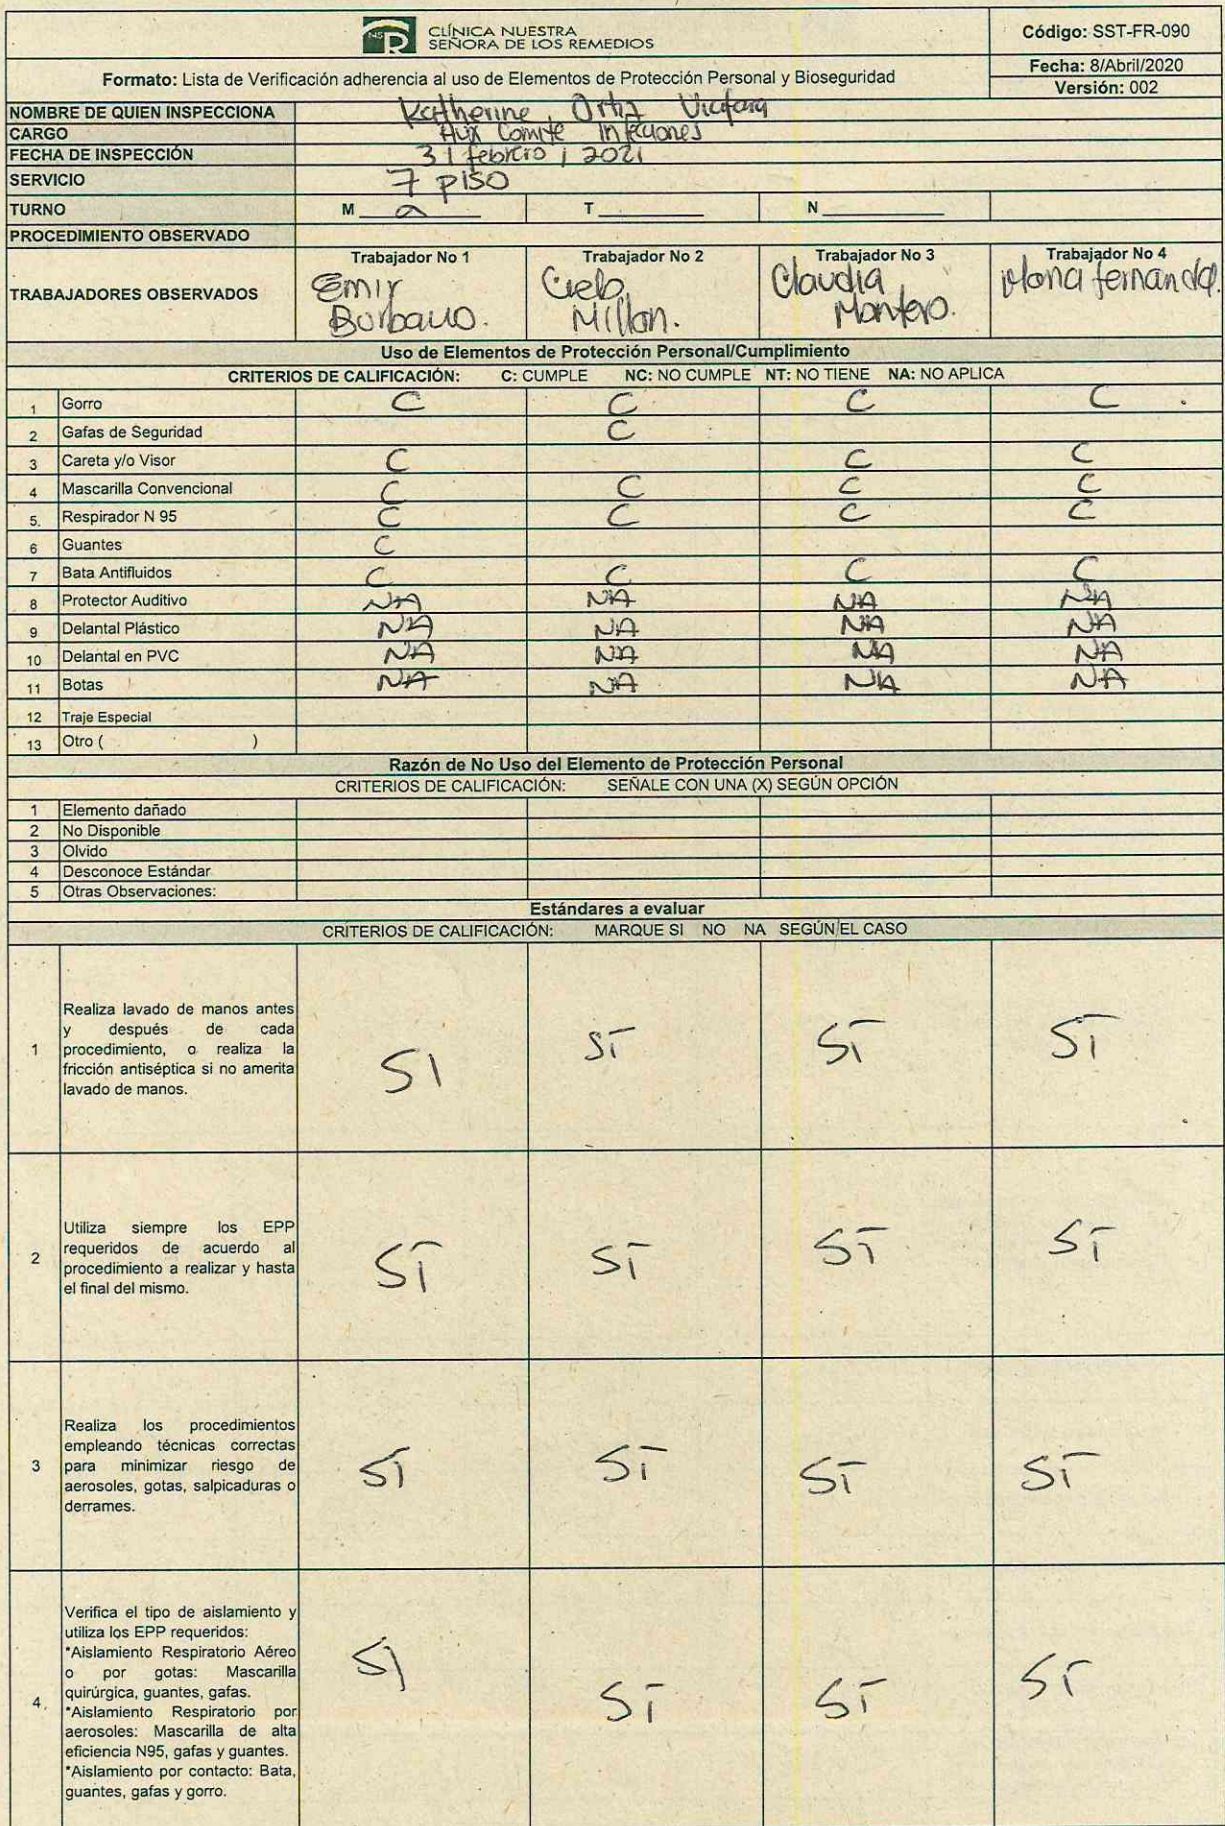 CLÍNICA NUESTRA
SEÑORA DE LOS REMEDIOS
Código: SST-FR-090
Formato: Lista de Verificación adherencia al uso de Elementos de Protección Personal y Bioseguridad
Fecha: 8/Abril/2020
Versión: 002
NOMBRE DE QUIEN INSPECCIONA Katherine Ortiz
CARGO Aux Comite Infecciones
FECHA DE INSPECCIÓN 3 1 febrero 1 2021
SERVICIO 7 PISO
TURNO M T N
PROCEDIMIENTO OBSERVADO
TRABAJADORES OBSERVADOS
Trabajador No 1 Trabajador No 2 Trabajador No 3 Trabajador No 4
Emir Cielo Claudia fernanda
Burbano. Millan. Montero.
Uso de Elementos de Protección Personal/Cumplimiento
CRITERIOS DE CALIFICACIÓN: C: CUMPLE NC: NO CUMPLE NT: NO TIENE NA: NO APLICA
1 Gorro C C C C
2 Gafas de Seguridad C
3 Careta y/o Visor C C C
4 Mascarilla Convencional C C C C
5. Respirador N 95 C C C C
6 Guantes C
7 Bata Antifluidos C C C C
8 Protector Auditivo NA NA NA NA
9 Delantal Plástico NA NA NA NA
10 Delantal en PVC NA NA NA NA
11 Botas NA NA NA NA
12 Traje Especial
13 Otro ( )
Razón de No Uso del Elemento de Protección Personal
CRITERIOS DE CALIFICACIÓN: SEÑALE CON UNA (X) SEGÚN OPCIÓN
1 Elemento dañado
2 No Disponible
3 Olvido
4 Desconoce Estándar
5 Otras Observaciones:
Estándares a evaluar
CRITERIOS DE CALIFICACIÓN: MARQUE SI NO NA SEGÚN EL CASO
1
Realiza lavado de manos antes
y después de cada
procedimiento, o realiza la
fricción antiséptica si no amerita
lavado de manos.
SI SI SI SI
2
Utiliza siempre los EPP
requeridos de acuerdo al
procedimiento a realizar y hasta
el final del mismo.
SI SI SI SI
3
Realiza los procedimientos
empleando técnicas correctas
para minimizar riesgo de
aerosoles, gotas, salpicaduras o
derrames.
SI SI SI SI
4.
Verifica el tipo de aislamiento y
utiliza los EPP requeridos:
*Aislamiento Respiratorio Aéreo
o por gotas: Mascarilla
quirúrgica, guantes, gafas.
*Aislamiento Respiratorio por
aerosoles: Mascarilla de alta
eficiencia N95, gafas y guantes.
*Aislamiento por contacto: Bata,
guantes, gafas y gorro.
SI SI SI SI